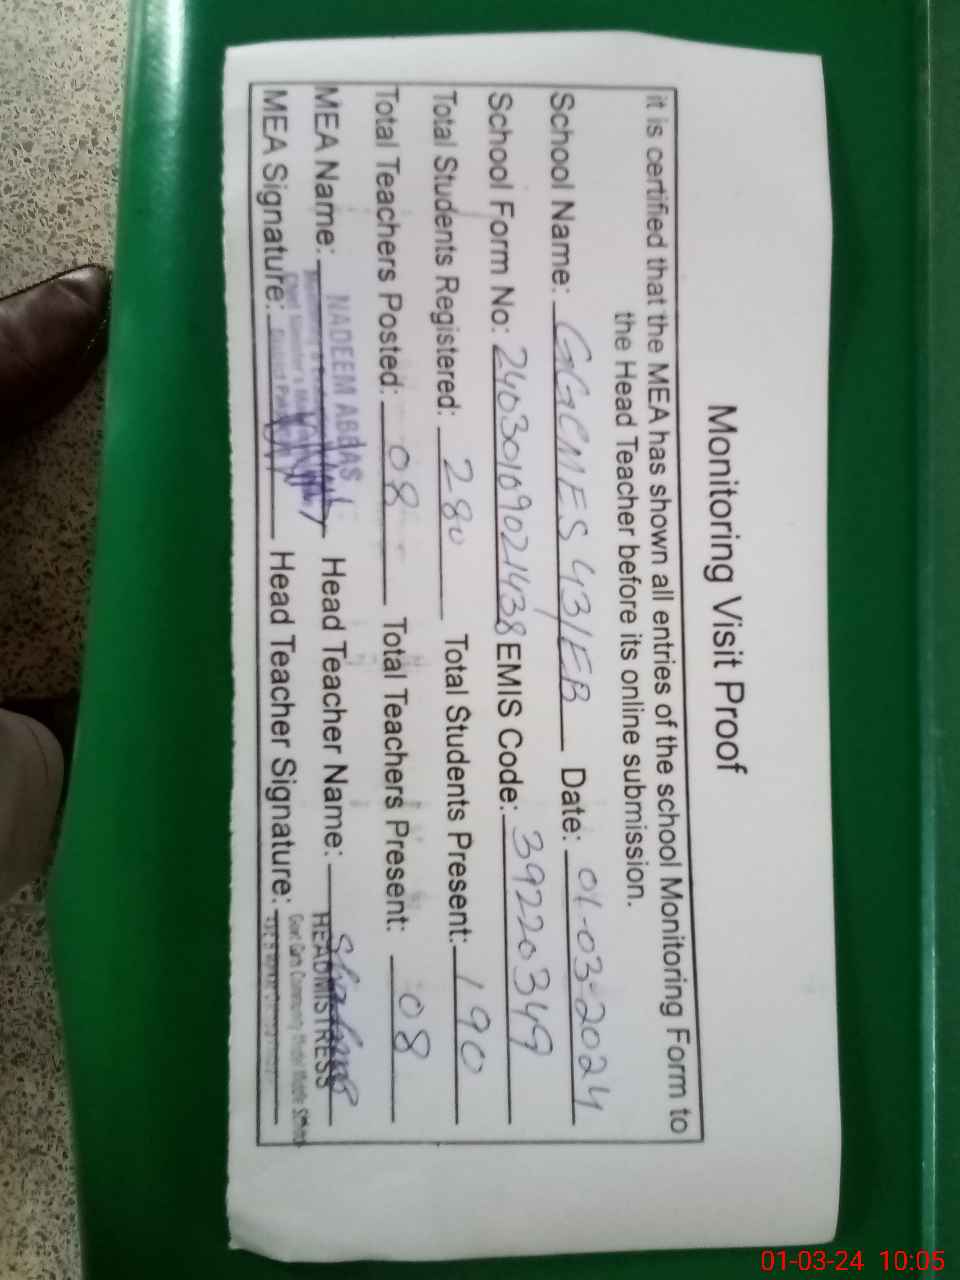 Monitoring Visit Proof
it is certified that the MEA has shown all entries of the school Monitoring Form to
the Head Teacher before its online submission.
School Name: GGCMES 43/EB Date: 01-03-2024
School Form No: 24030109021438 EMIS Code: 39220349
Total Students Registered: 280 Total Students Present: 190
Total Teachers Posted: 08 Total Teachers Present: 08
MEA Name: NADEEM ABBAS Head Teacher Name:
HEADMISTRESS
MEA Signature: Head Teacher Signature:
01-03-24 10:05